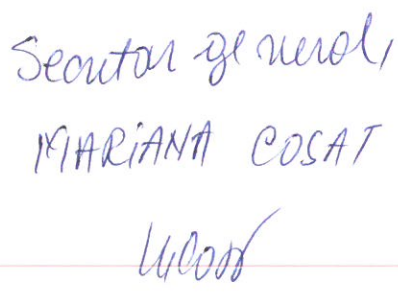 Secretar general,
MARIANA COSAT